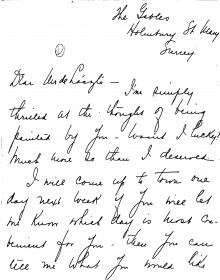 The Gables
Holmbury St. Mary
Surrey
Dear Mr de László –
I'm simply
thrilled at the thought of being
painted by you – wasn't I lucky?
Much more so than I deserved.
I will come up to town one
day next week if you will let
me know which day is most con-
venient for you – then you can
tell me what you would like